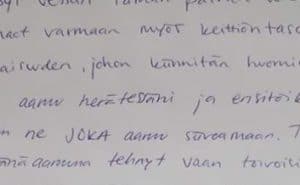 varmaan myös keittiön taso
aisuuden, johon kiinnitän huomio
aamu herätessäni ja ensitöik
ne JOKA aamu siivoamaan. T
änä aamuna tehnyt vaan toivoisi